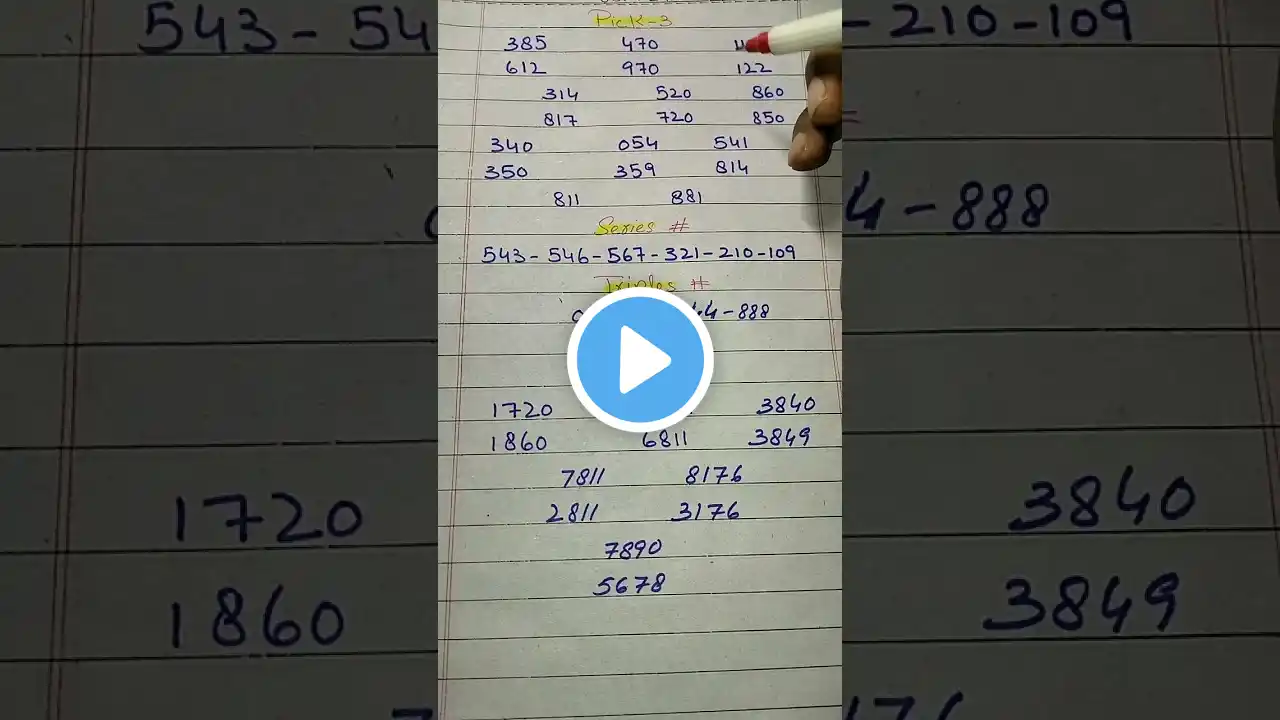 Pick-3
385 470
612 970 122
314 520 860
817 720 850
340 054 541
350 359 814
811 881
Series #
543-546-567-321-210-109
Triples #
-888
1720 3840
1860 6811 3849
7811 8176
2811 3176
7890
5678